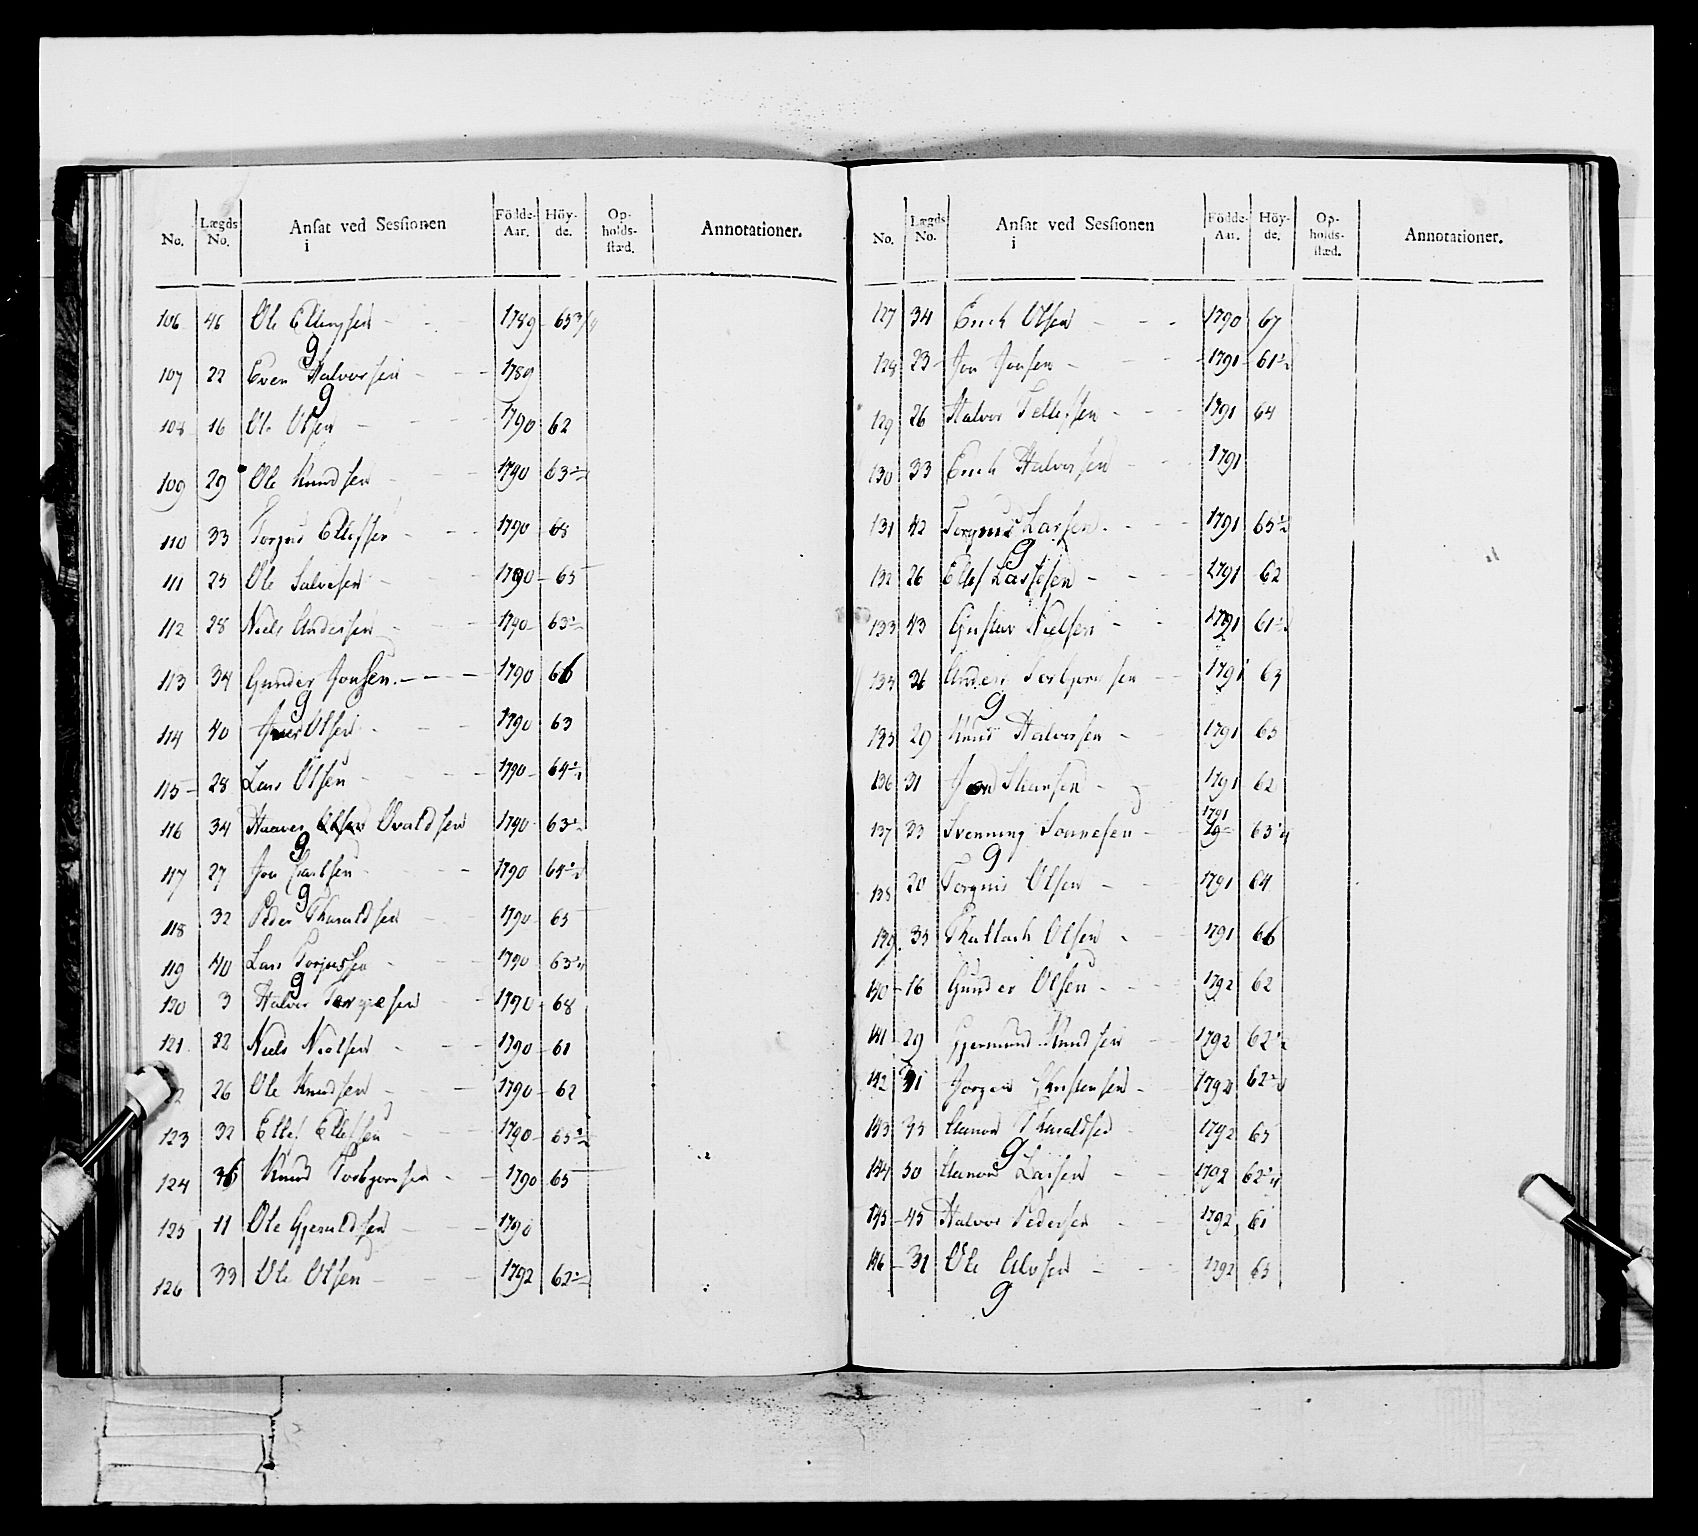 No. Lægds No. Ansat ved Sessionen i Födde-Aar. Höy-de. Op-holds-stæd. Annotationer.
106 46 Ole Ellingsen 1789 65 3/4
9
107 22 Even Halvorsen 1789
9
108 16 Ole Olsen 1790 62
109 29 Ole Knudsen 1790 63 1/2
110 33 Torgus Ellefsen 1790 68
111 25 Ole Salvesen 1790 65
112 28 Niels Andersen 1790 63 1/2
113 34 Gunder Jonsen 1790 66
9
114 40 Olsen 1790 63
115 28 Lars Olsen 1790 64 1/2
116 34 Haaver Olsen Ovaldsen 1790 63 1/2
9
117 27 Jon Carlsen 1790 64 1/2
9
118 32 Peder Tharaldsen 1790 65
119 40 Lars Torjussen 1790 63 1/4
9
120 3 Halvor Torgesen 1790 68
121 22 Niels Nielsen 1790 61
26 Ole Knudsen 1790 62
123 32 Ellef Ellefsen 1790 65 1/2
124 36 Knud Torbjornsen 1790 65
125 11 Ole Gjeruldsen 1790
126 33 Ole Olsen 1792 62 1/2
No. Lægds No. Ansat ved Sessionen i Födde-Aar. Höy-de. Op-holds-stæd. Annotationer.
127 34 Erich Olsen 1790 67
128 23 Jon Jonsen 1791 61 1/2
129 26 Halvor Tellefsen 1791 64
130 33 Erich Halvorsen 1791
131 42 Torgius Larsen 1791 65 1/2
9
132 26 Ellef Lassesen 1791 62
133 43 Gustav Nielsen 1791 61 1/2
26 Anders Torbjornsen 1791 63
9
135 29 Knud Halvorsen 1791 65
136 31 Jon Stiansen 1791 62
137 33 Svenning Sonnesen 1791 63 1/4
9
138 20 Torgius Olsen 1791 64
139 35 Thallach Olsen 1791 66
140 16 Gunder Olsen 1792 62
141 29 Gjermund Knudsen 1792 62 1/2
142 31 Jorgen Christensen 1792 62 1/4
143 45 Gunnor Tharaldsen 1792 65
9
144 30 Gunnor Larsen 1792 62 1/4
145 45 Halvor Pedersen 1792 61
146 31 Ole Olsen 1792 63
9